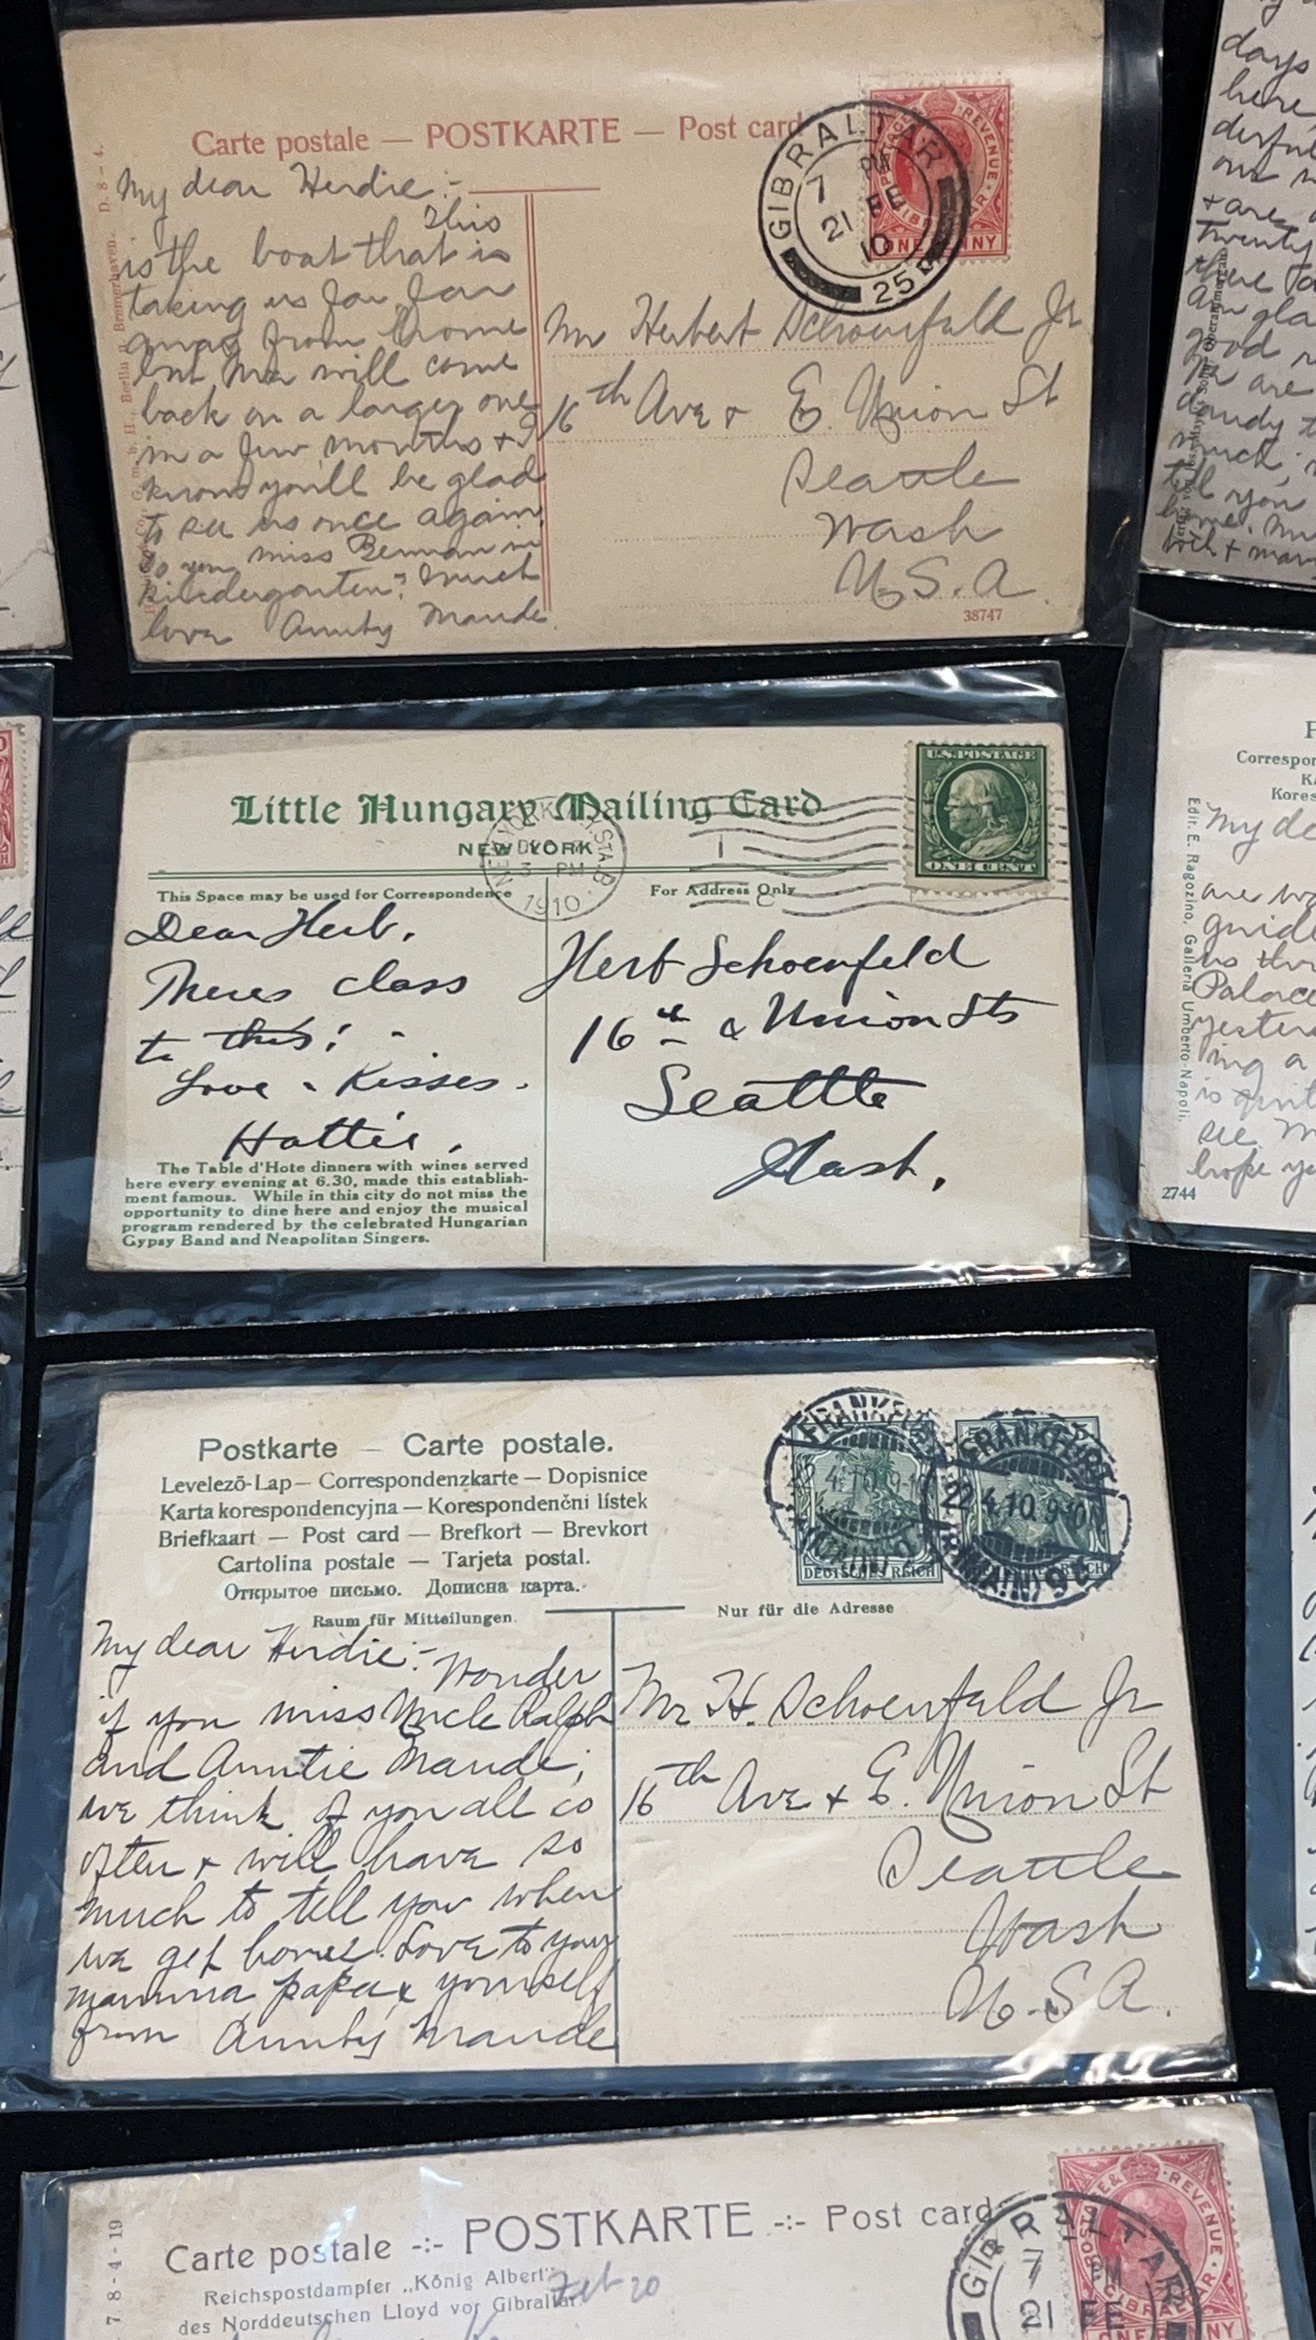 D. 8 - 4.
Carte postale — POSTKARTE — Post card
GIBRALTAR
7 PM
21 FE
10
25
POSTAGE & REVENUE
GIBRALTAR
ONE PENNY
My dear Herdie:-
This
is the boat that is
taking us far far
away from home
but Ma will come
back on a larger one
in a few months + I
know you'll be glad
to see us once again.
Do you miss German in
kindergarten? Much
love Aunty Maude.
Mr Herbert Schoenfeld Jr
16th Ave + E. Union St
Seattle
Wash
U.S.A.
38747
Little Hungary Mailing Card
NEW YORK
This Space may be used for Correspondence
For Address Only
NEW YORK STA. B
3 - PM
1910
U.S. POSTAGE
ONE CENT
Dear Herb.
Theres class
to this!
Love & Kisses.
Hattie.
Herb Schoenfeld
16th & Union Sts
Seattle
Wash.
The Table d'Hote dinners with wines served
here every evening at 6.30, made this establish-
ment famous. While in this city do not miss the
opportunity to dine here and enjoy the musical
program rendered by the celebrated Hungarian
Gypsy Band and Neapolitan Singers.
Postkarte — Carte postale.
Levelező-Lap — Correspondenzkarte — Dopisnice
Karta korespondencyjna — Korespondenční lístek
Briefkaart — Post card — Brefkort — Brevkort
Cartolina postale — Tarjeta postal.
Открытое письмо. Дописна карта.
Raum für Mitteilungen.
Nur für die Adresse
FRANKFURT
22.4.10. 9-10
(MAIN)
DEUTSCHES REICH
My dear Herdie:- Wonder
if you miss Uncle Ralph
and Auntie Maude;
we think of you all so
often + will have so
much to tell you when
we get home. Love to your
mamma papa & yourself
from Aunty Maude
Mr H. Schoenfeld Jr
16th Ave + E. Union St
Seattle
Wash
U.S.A.
7 8 - 4 - 19
Carte postale -:- POSTKARTE -:- Post card
Reichspostdampfer „König Albert"
des Norddeutschen Lloyd vor Gibraltar.
Feb 20
GIBRALTAR
7 PM
21 FE
POSTAGE & REVENUE
GIBRALTAR
ONE PENNY
days
here
our
+ are
twenty
there
am gla
good
are
dandy
much
tell you
home.
Correspon
Kores
My de
are
guide
us thr
Palace
yester
ing a
is
see. M
hope yo
Edit. E. Ragozino, Galleria Umberto - Napoli.
2744